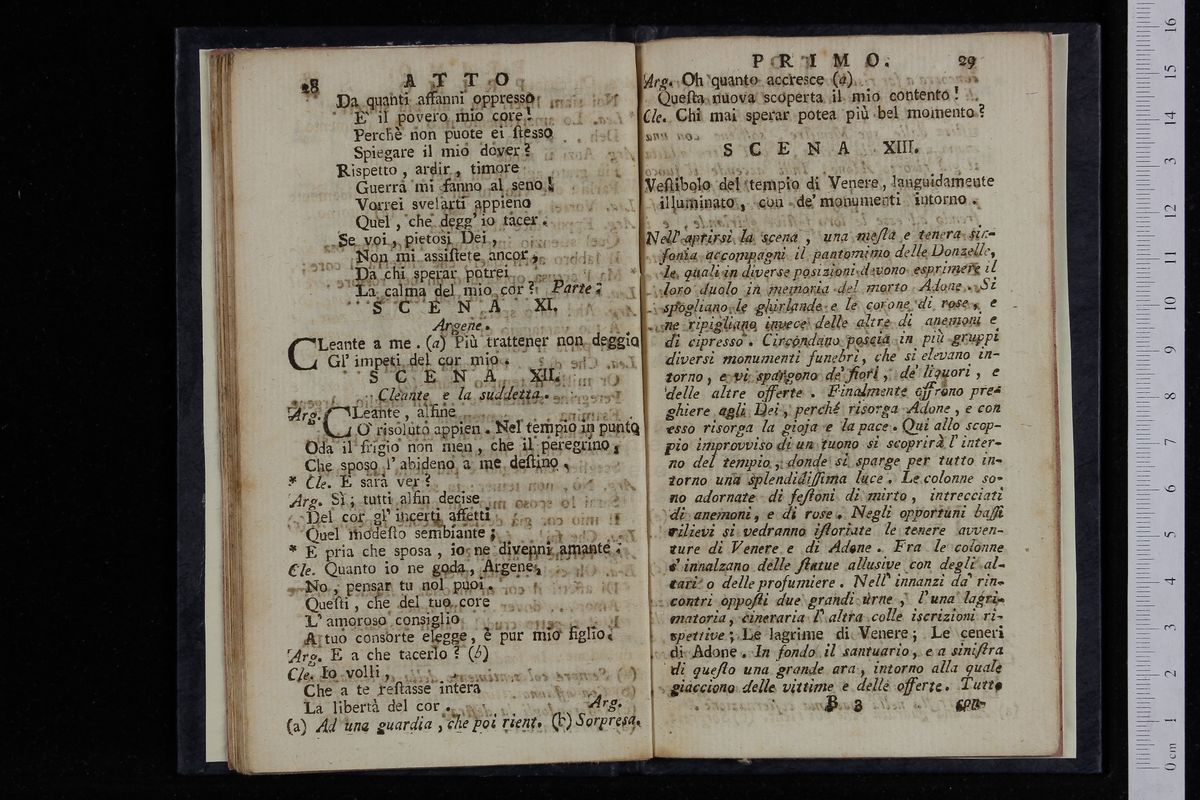 28 ATTO
Da quanti affanni oppresso
E' il povero mio core!
Perchè non puote ei ſtesso
Spiegare il mio dover?
Rispetto, ardir, timore
Guerra mi fanno al seno!
Vorrei svelarti appieno
Quel, che degg' io tacer.
Se voi, pietosi Dei,
Non mi assiſtete ancor,
Da chi sperar potrei
La calma del mio cor? Parte.
SCENA XI.
Argene.
CLeante a me. (a) Più trattener non deggio
Gl' impeti del cor mio.
SCENA XII.
Cleante e la suddetta.
Arg. CLeante, alfine
O' risoluto appien. Nel tempio in punto
Oda il frigio non men, che il peregrino,
Che sposo l' abideno a me deſtino,
* Cle. E sarà ver?
Arg. Sì; tutti alfin decise
Del cor gl' incerti affetti
Quel modeſto sembiante;
* E pria che sposa, io ne divenni amante.
Cle. Quanto io ne goda, Argene,
No, pensar tu nol puoi.
Queſti, che del tuo core
L' amoroso consiglio
A tuo consorte elegge, è pur mio figlio.
Arg. E a che tacerlo? (b)
Cle. Io volli,
Che a te reſtasse intera
La libertà del cor. Arg.
(a) Ad una guardia, che poi rient. (b) Sorpresa.
PRIMO. 29
Arg. Oh quanto accresce (a)
Queſta nuova scoperta il mio contento!
Cle. Chi mai sperar potea più bel momento?
SCENA XIII.
Veſtibolo del tempio di Venere, languidamente
illuminato, con de' monumenti intorno.
Nell' aprirsi la scena, una meſta e tenera sin-
fonia accompagni il pantomimo delle Donzelle,
le quali in diverse posizioni devono esprimere il
loro duolo in memoria del morto Adone. Si
spogliano le ghirlande e le corone di rose, e
ne ripigliano invece delle altre di anemoni e
di cipresso. Circondano poscia in più gruppi
diversi monumenti funebri, che si elevano in-
torno, e vi spargono de' fiori, de' liquori, e
delle altre offerte. Finalmente offrono pre-
ghiere agli Dei, perché risorga Adone, e con
esso risorga la gioja e la pace. Qui allo scop-
pio improvviso di un tuono si scoprirà l' inter-
no del tempio, donde si sparge per tutto in-
torno una splendidiſſima luce. Le colonne so-
no adornate di feſtoni di mirto, intrecciati
di anemoni, e di rose. Negli opportuni baſſi
rilievi si vedranno iſtoriate le tenere avven-
ture di Venere e di Adone. Fra le colonne
s' innalzano delle ſtatue allusive con degli al-
tari o delle profumiere. Nell' innanzi da rin-
contri oppoſti due grandi urne, l' una lagri-
matoria, cineraria l' altra colle iscrizioni ri-
spettive; Le lagrime di Venere; Le ceneri
di Adone. In fondo il santuario, e a siniſtra
di queſto una grande ara, intorno alla quale
giacciono delle vittime e delle offerte. Tutto
B 3 con-
0 cm 1 2 3 4 5 6 7 8 9 10 11 12 13 14 15 16